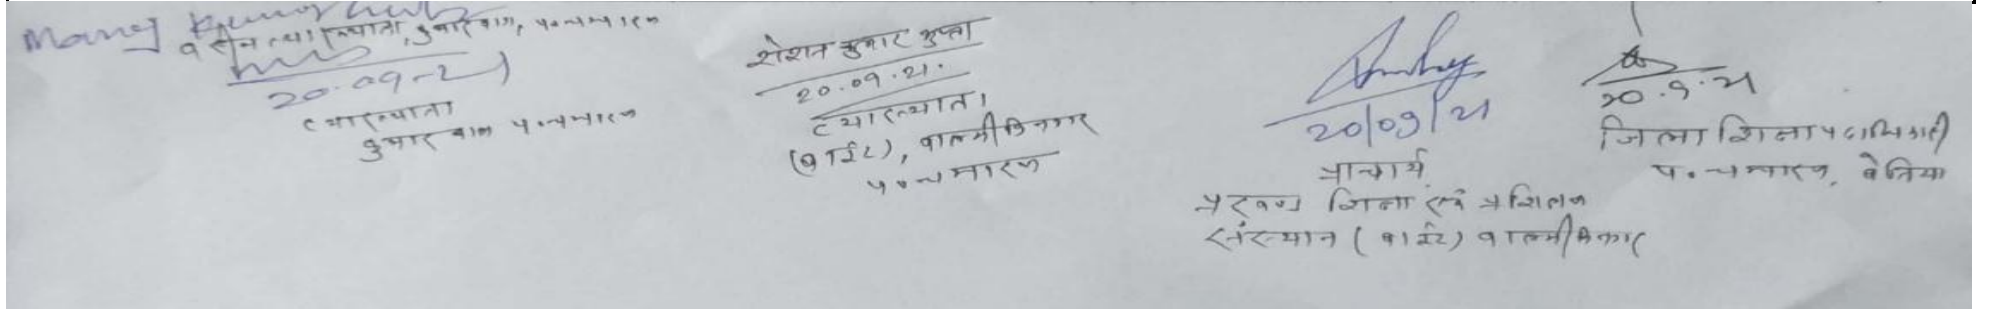 Manoj Kumar
व्याख्याता, कुमारबाग, प० चम्पारण
20-09-21
व्याख्याता
कुमारबाग प० चम्पारण
रोशन कुमार गुप्ता
20.09.21.
व्याख्याता
(बाईट), वाल्मीकिनगर
प० चम्पारण
20/09/21
प्राचार्य
प्रखण्ड शिक्षा एवं प्रशिक्षण
संस्थान (बाईट) वाल्मीकिनगर
20.9.21
जिला शिक्षा पदाधिकारी
प० चम्पारण, बेतिया